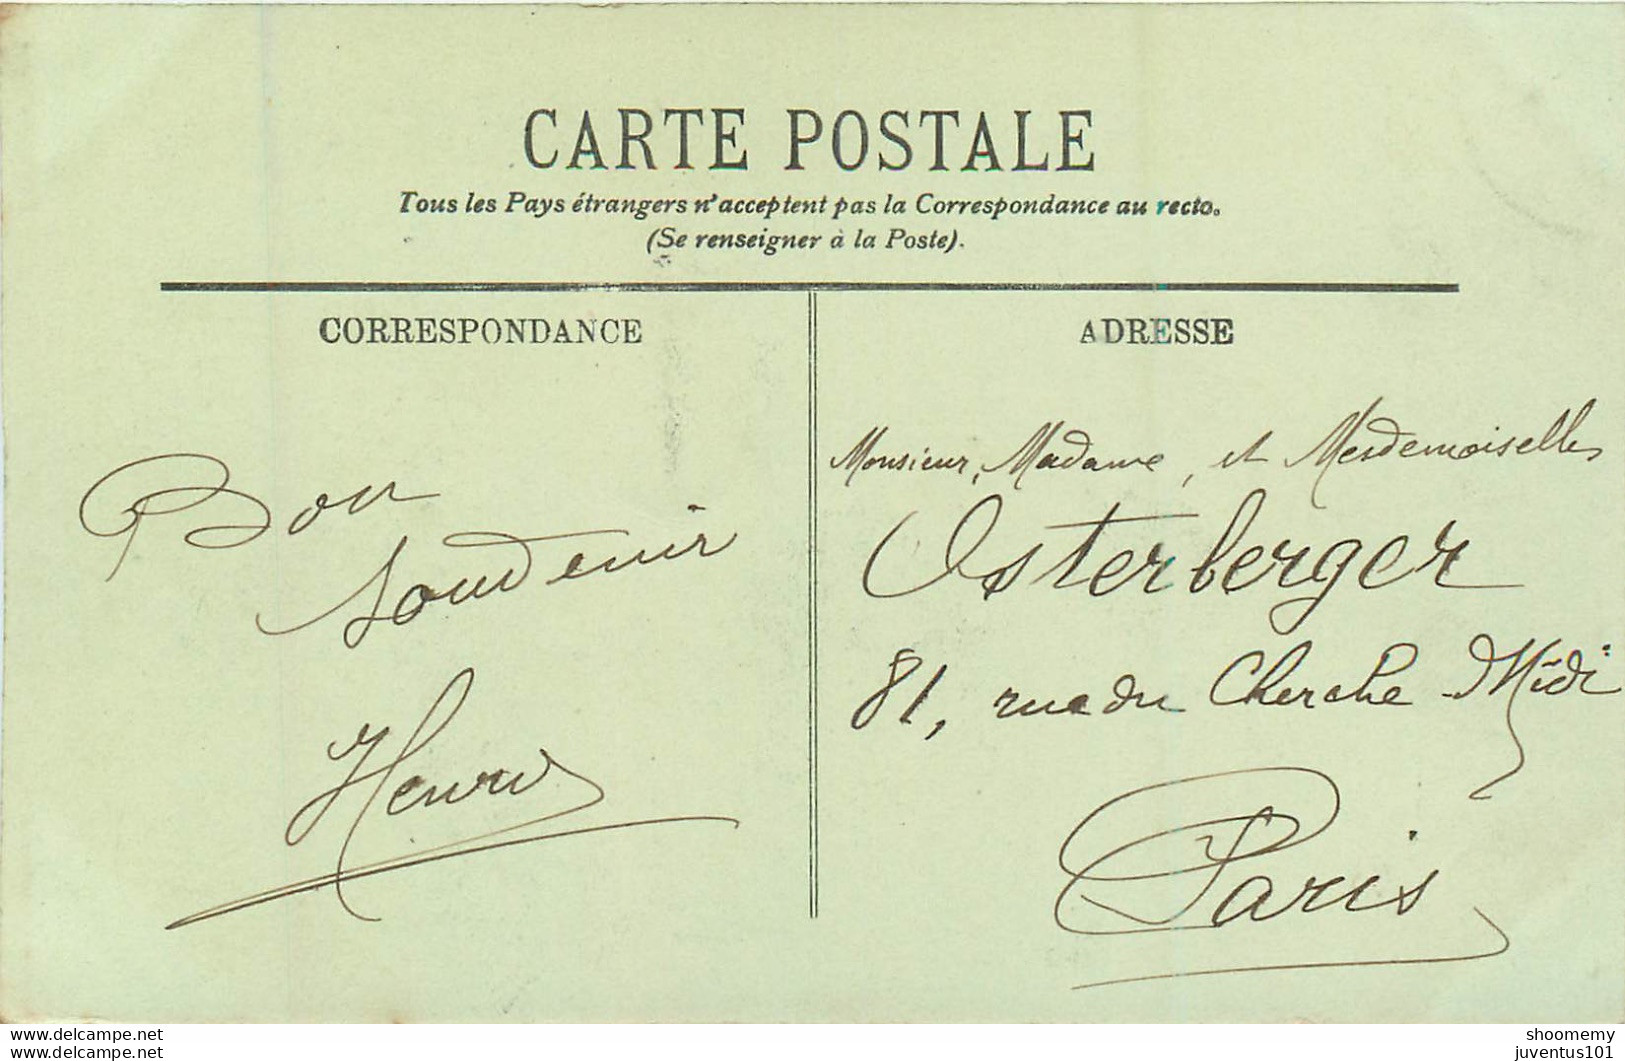 CARTE POSTALE
Tous les Pays étrangers n'acceptent pas la Correspondance au recto.
(Se renseigner à la Poste).
CORRESPONDANCE
Bon
souvenir
Henri
ADRESSE
Monsieur, Madame, et Mesdemoiselles
Osterberger
81, rue du Cherche Midi
Paris
www.delcampe.net
www.delcampe.net
shoomemy
juventus101